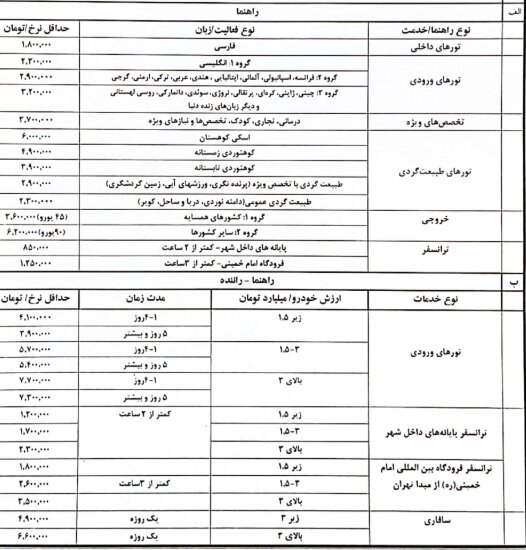 الف
راهنما
نوع راهنما/خدمت نوع فعالیت/زبان حداقل نرخ/تومان
تورهای داخلی فارسی ۱،۸۰۰،۰۰۰
تورهای ورودی گروه ۱: انگلیسی ۲،۳۰۰،۰۰۰
گروه ۲: فرانسه، اسپانیولی، آلمانی، ایتالیایی، هندی، عربی، ترکی، ارمنی، گرجی ۲،۹۰۰،۰۰۰
گروه ۳: چینی، ژاپنی، کره‌ای، پرتقالی، نروژی، سوئدی، دانمارکی، روسی لهستانی ۳،۲۰۰،۰۰۰
و دیگر زبان‌های زنده دنیا
تخصص‌های ویژه درمانی، تجاری، کودک، تخصص‌ها و نیازهای ویژه ۳،۷۰۰،۰۰۰
تورهای طبیعت‌گردی اسکی کوهستان ۶،۰۰۰،۰۰۰
کوهنوردی زمستانه ۴،۹۰۰،۰۰۰
کوهنوردی تابستانه ۳،۹۰۰،۰۰۰
طبیعت گردی با تخصص ویژه (پرنده نگری، ورزشهای آبی، زمین گردشگری) ۲،۹۰۰،۰۰۰
طبیعت گردی عمومی(دامنه نوردی، دریا و ساحل، کویر) ۲،۳۰۰،۰۰۰
خروجی گروه ۱: کشورهای همسایه (۴۵ یورو)۳،۶۰۰،۰۰۰
گروه ۲: سایر کشورها (۹۰یورو)۶،۲۰۰،۰۰۰
ترانسفر پایانه های داخل شهر- کمتر از ۲ ساعت ۸۵۰،۰۰۰
فرودگاه امام خمینی- کمتر از ۳ساعت ۱،۲۵۰،۰۰۰
ب
راهنما - راننده
نوع خدمات ارزش خودرو/ میلیارد تومان مدت زمان حداقل نرخ/ تومان
تورهای ورودی زیر ۱.۵ ۱-۴روز ۴،۱۰۰،۰۰۰
۵ روز و بیشتر ۳،۹۰۰،۰۰۰
۱.۵-۳ ۱-۴روز ۵،۷۰۰،۰۰۰
۵ روز و بیشتر ۵،۴۰۰،۰۰۰
بالای ۳ ۱-۴روز ۷،۷۰۰،۰۰۰
۵ روز و بیشتر ۷،۳۰۰،۰۰۰
ترانسفر پایانه‌های داخل شهر زیر ۱.۵ کمتر از ۲ ساعت ۱،۲۰۰،۰۰۰
۱.۵-۳ ۱،۷۰۰،۰۰۰
بالای ۳ ۲،۳۰۰،۰۰۰
ترانسفر فرودگاه بین المللی امام خمینی(ره) از مبدا تهران زیر ۱.۵ ۱،۸۰۰،۰۰۰
۱.۵-۳ کمتر از ۳ساعت ۲،۶۰۰،۰۰۰
بالای ۳ ۳،۵۰۰،۰۰۰
سافاری زیر ۳ یک روزه ۴،۹۰۰،۰۰۰
بالای ۳ یک روزه ۶،۶۰۰،۰۰۰